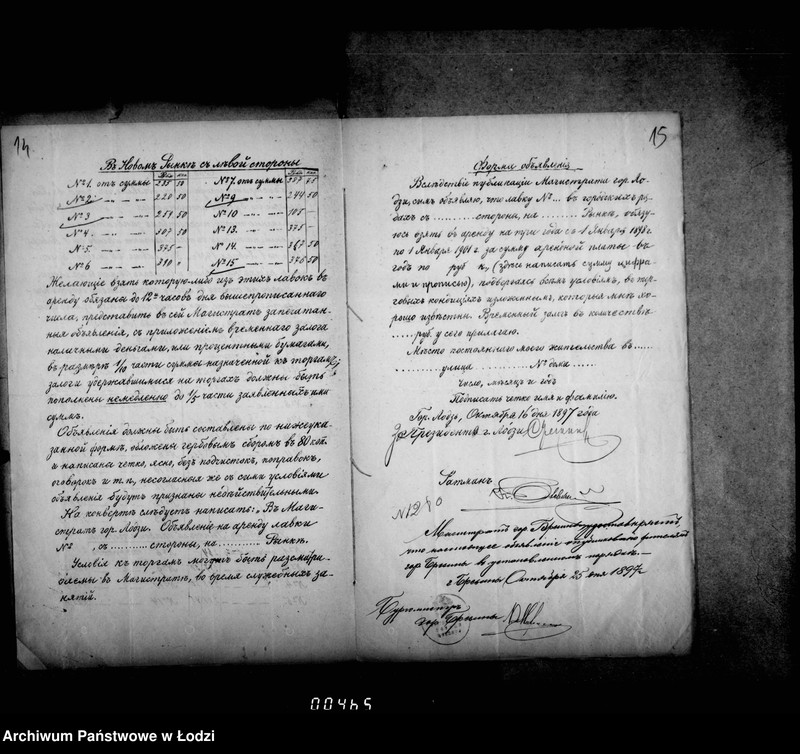 14
Въ Новомъ Рынкѣ съ лѣвой стороны
№ 1. отъ суммы 255 50 № 7. отъ суммы
№ 2 220 50 № 9 244 50
№ 3 50 № 10 105 —
№ 4. 307 50 № 13. 375 —
№ 5. 375 — № 14. 367 50
№ 6 № 15 376 50
Желающіе взять которую-либо изъ этихъ лавокъ въ
аренду обязаны до 12ти часовъ дня вышепрописаннаго
числа, представить въ сей Магистратъ запечатан-
ныя объявленія, съ приложеніемъ временнаго залога
наличными деньгами, или процентными бумагами,
въ размѣрѣ 1/10 части суммы назначенной къ торгамъ;
залоги удержавшимися на торгахъ должны быть
пополнены немедленно до 1/5 части заявленныхъ ими
суммъ.
Объявленія должны быть составлены по нижеука-
занной формѣ, обложены гербовымъ сборомъ въ 80 коп.
и написаны четко, ясно, безъ подчистокъ, поправокъ,
оговорокъ и т.п., несогласныя же съ сими условіями
объявленія будутъ признаны недѣйствительными.
На конвертѣ слѣдуетъ написать: „Въ Маги-
стратъ гор. Лодзи. Объявленіе на аренду лавки
№ , съ ......... стороны, на ......... Рынкѣ.
Условія къ торгамъ могутъ быть разсматри-
ваемы въ Магистратѣ, во время служебныхъ за-
нятій.
15
Форма объявленія
Вслѣдствіе публикаціи Магистрата гор. Ло-
дзи, симъ объявляю, что лавку № ... въ городскихъ ря-
дахъ съ ......... стороны, на ......... Рынкѣ, обязу-
юсь взять въ аренду на три года съ 1 Января 1898 г.
по 1 Января 1901 г. за сумму арендной платы въ
годъ по руб к. (здѣсь написать сумму цифра-
ми и прописью), подвергаясь всѣмъ условіямъ, въ тор-
говыхъ кондиціяхъ изложеннымъ, которыя мнѣ хо-
рошо извѣстны. Временный залогъ въ количествѣ
...... руб. у сего прилагаю.
Мѣсто постояннаго моего жительства въ ......
......... улица ......... № дома ......
Число, мѣсяцъ и годъ
Подписать четко имя и фамилію.
Гор. Лодзь, Октября 16 дня 1897 года
Президента г. Лодзи
Ратманъ
Магистратъ гор. Брезины удостовѣряетъ,
что настоящее объявленіе опубликовано жителямъ
гор. Брезины въ установленномъ порядкѣ.
г. Брезины Октября 25 дня 1897 г.
Бургомистръ
гор. Брезины
00465
Archiwum Państwowe w Łodzi